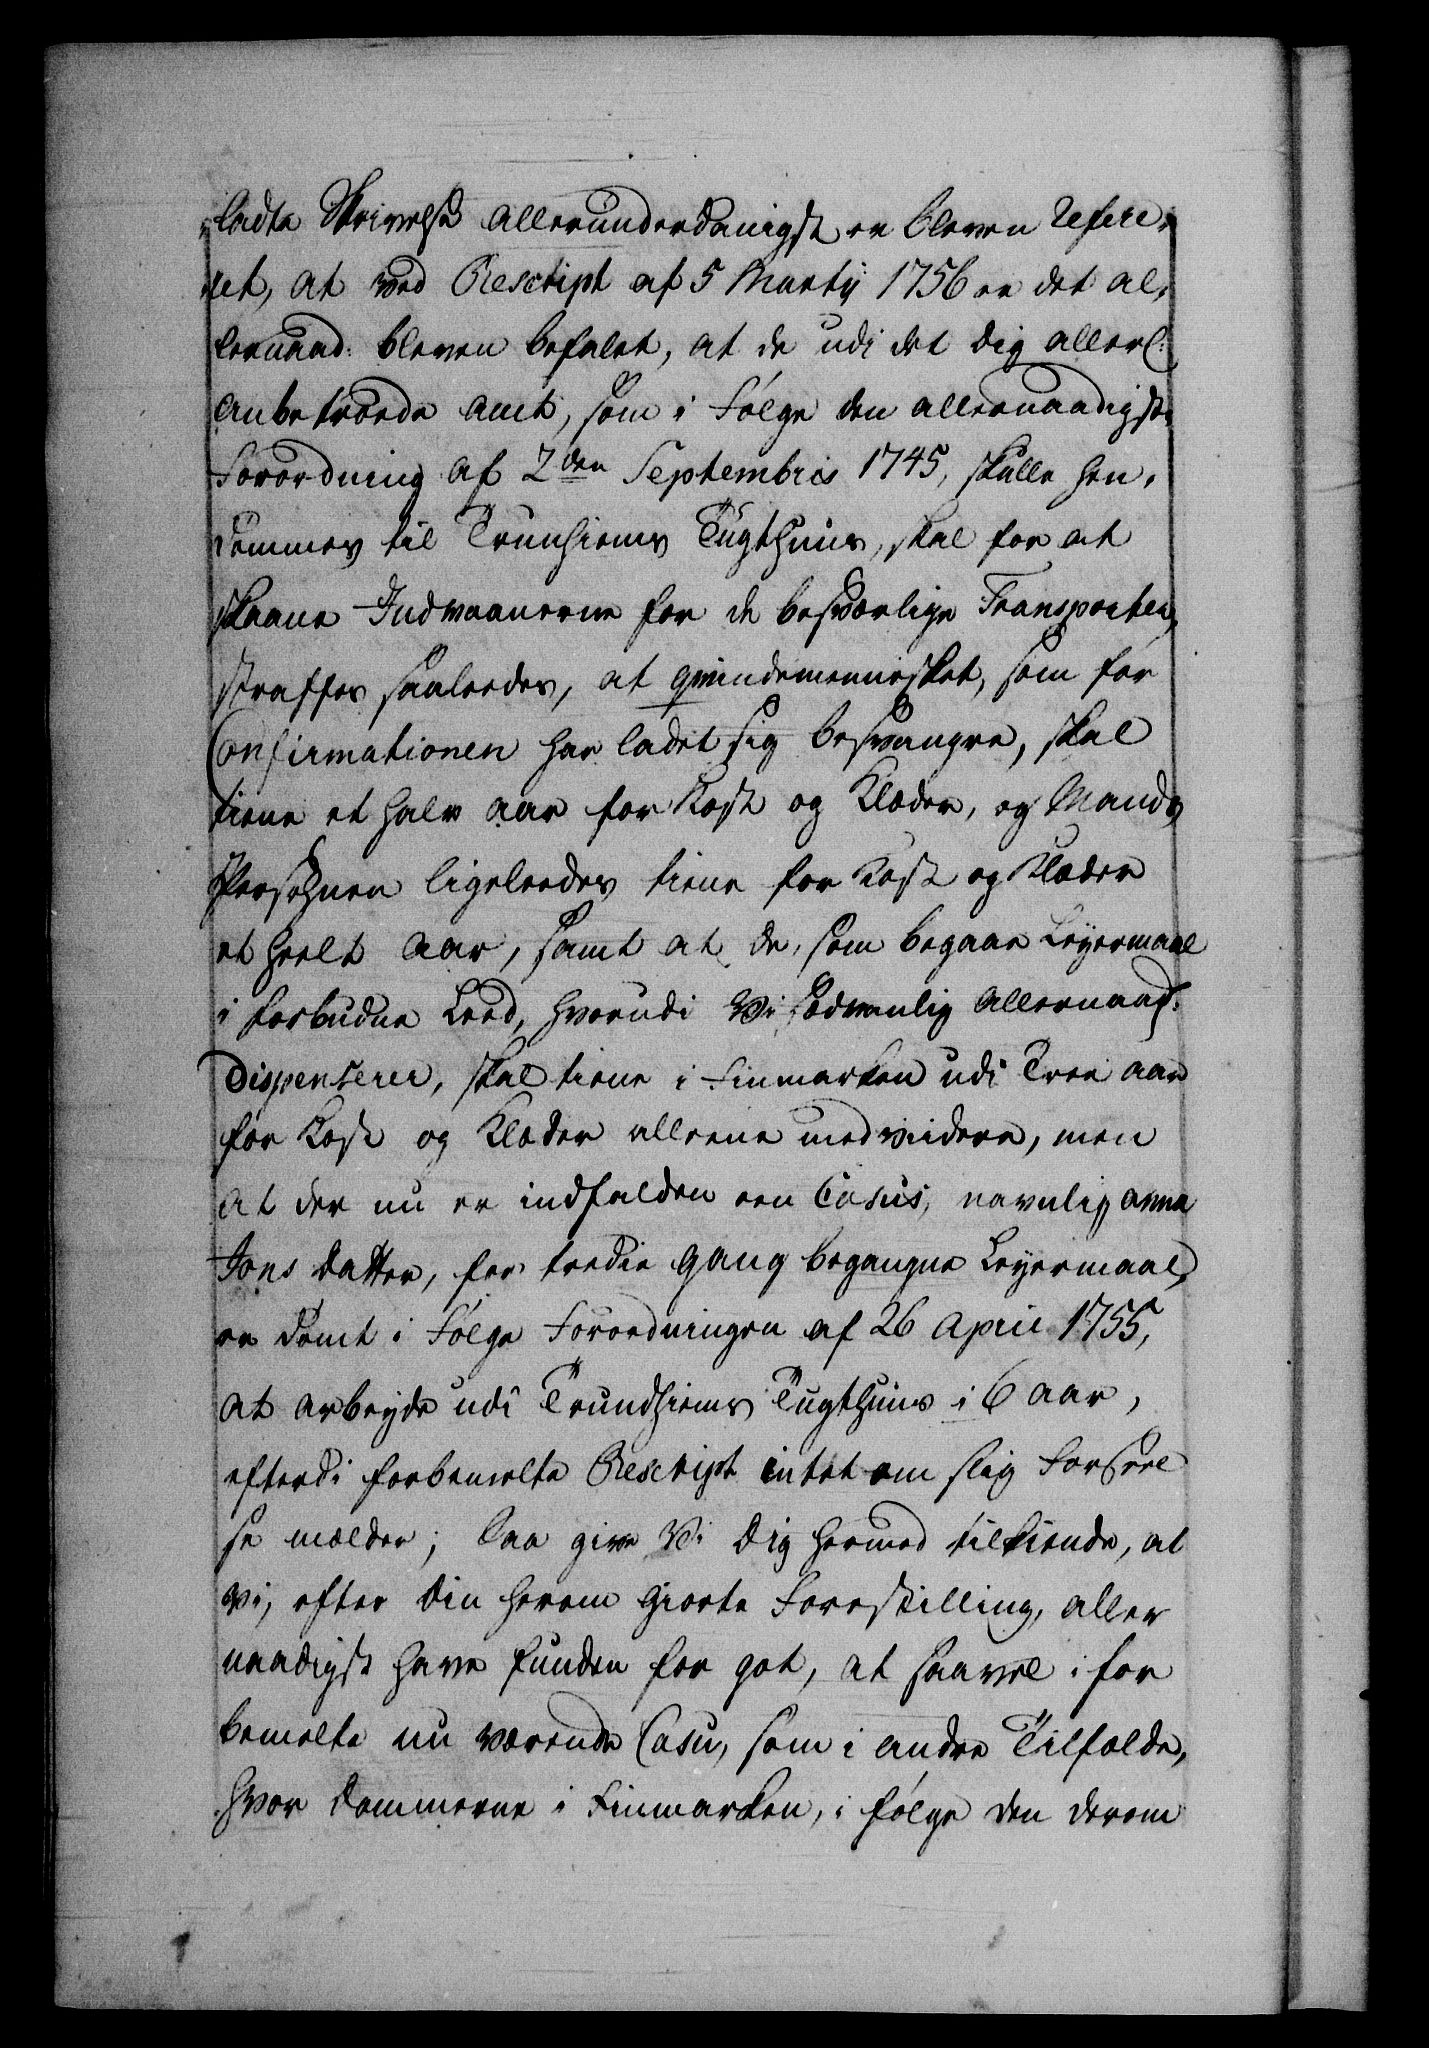 ladte Skrivelse allerunderdanigst er bleven refere-
ret, at ved Rescript af 5 Martij 1756 er det al-
lernaad: bleven befalet, at de udi det dig allern:
anbetroede Amt, som i Følge den allernaadigste
Forordning af 2den Septembris 1745, skulle hen-
dømmes til Trunhiems Tugthuus, skal for at
skaane Indvaanerne for de besværlige Transporter,
straffes saaleedes, at qvindemennisket, som før
Confirmationen har ladet sig besvangre, skal
tiene et halv aar for Kost og Klæder, og Mands
Persohnen ligeleedes tiene for Kost og Klæder
et heelt Aar, samt at de, som begaae Leyermaal
i forbudne Leed, hvorudi Vi sædvanlig allernaad:
dispenserer, skal tiene i Finmarken udi Tree aar
for Kost og Klæder alleene med viidere, men
at der nu er indfalden een Casus, navnlig Anna
Jons datter, for tredie gang begangne Leyermaal,
er dømt i Følge Forordningen af 26 April 1755,
at arbeyde udi Trundhiems Tugthuus i 6 aar,
efterdi forbemelte Rescript intet om slig Forseel
se mælder; Saa give Vi dig hermed tilkiende, at
Vi, efter din herom giorte Forestilling, aller
naadigst have funden for got, at saavel i for
bemelte nu værende Casu, som i andre Tilfælde,
hvor dommerne i Finmarken, i følge den derom